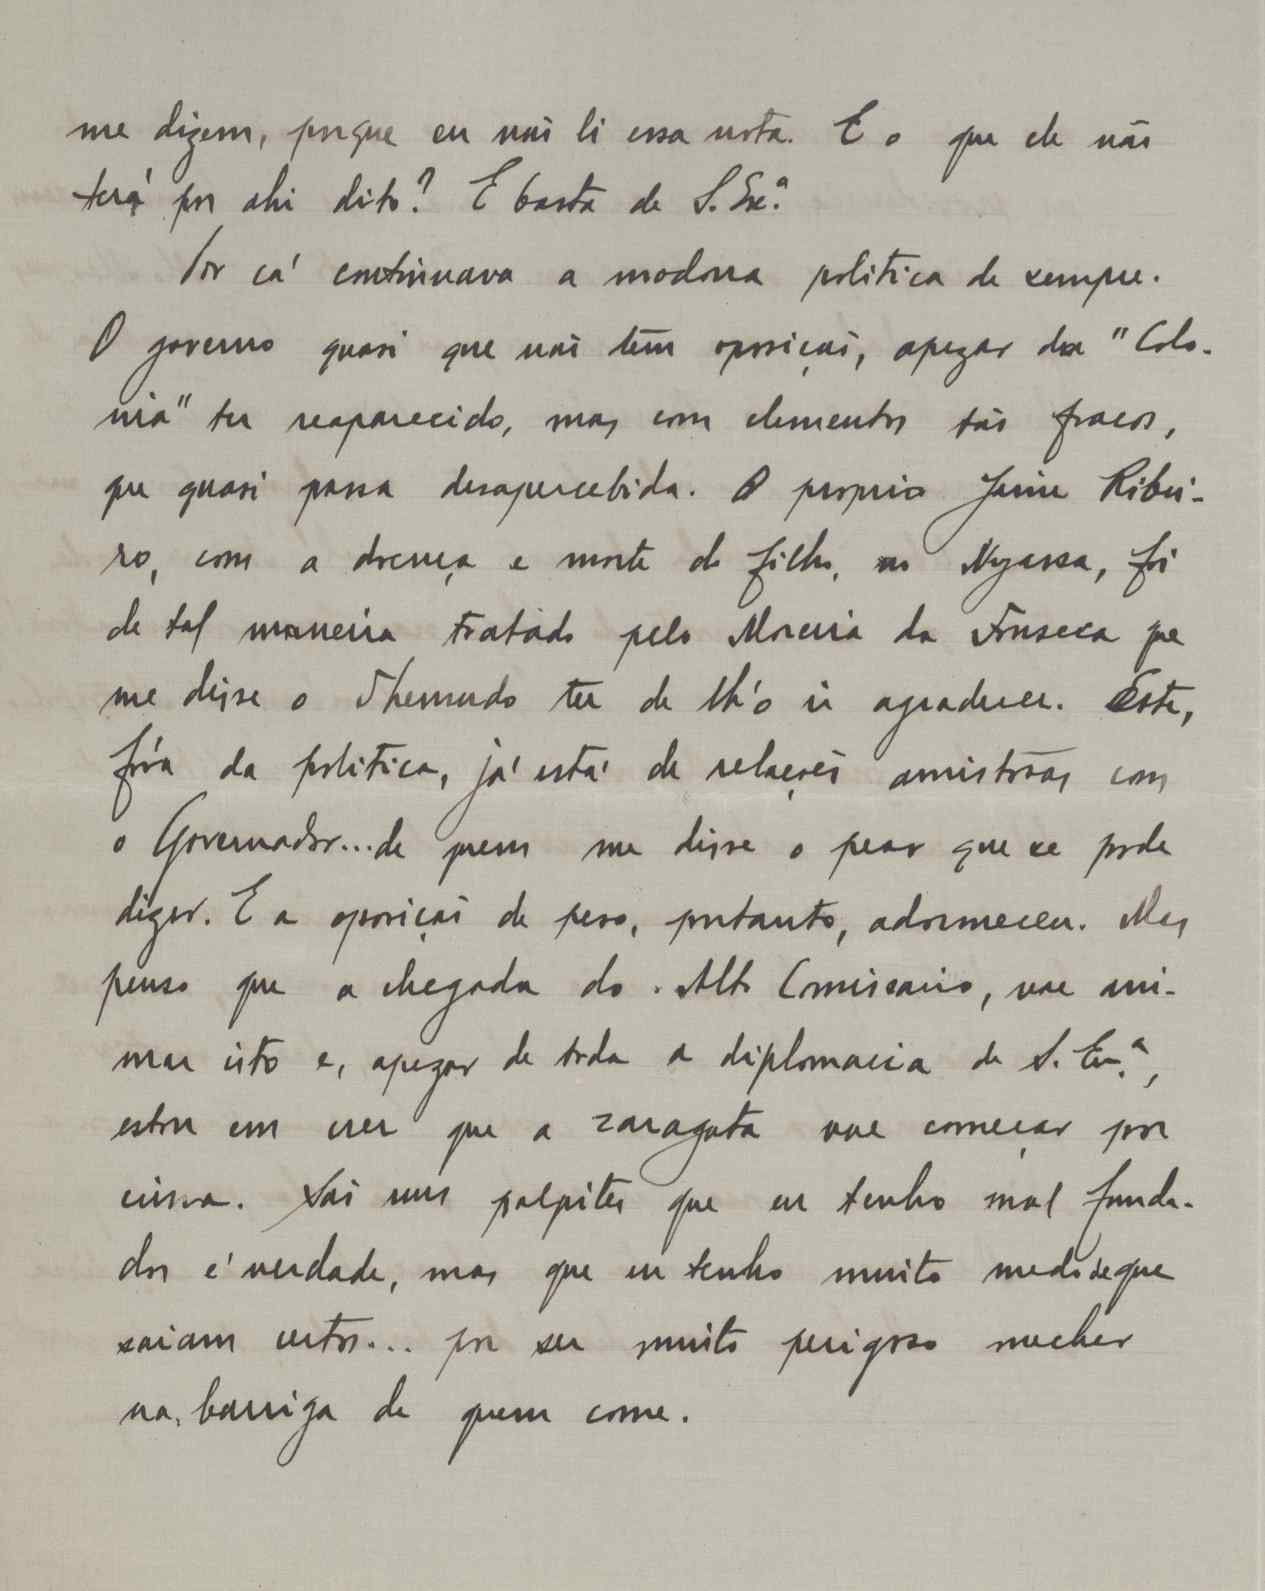 me dizem, porque eu não li essa nota. E o que ele não
terá por ahi dito? E basta de S. Ex.ª
Por cá continuava a modorra politica de sempre.
O governo quasi que não têm oposição, apezar da "Colo-
nia" ter reaparecido, mas com elementos tão fracos,
que quasi passa desapercebida. O proprio Jaime Ribei-
ro, com a doença e morte do filho, no Nyassa, foi
de tal maneira tratado pelo Moreira da Fonseca que
me disse o Themudo ter de lh'o ir agradecer. Este,
fóra da politica, já está de relações amistosas com
o Governador... de quem me disse o peor que se pode
dizer. E a oposição de peso, portanto, adormeceu. Mas
penso que a chegada do Alto Comissario, vae ani-
mar isto e, apezar de toda a diplomacia de S. Ex.ª,
estou em crer que a zaragata vae começar por
cima. São uns palpites que eu tenho mal funda-
dos é verdade, mas que eu tenho muito medo de que
saiam certos... por ser muito perigoso mecher
na barriga de quem come.